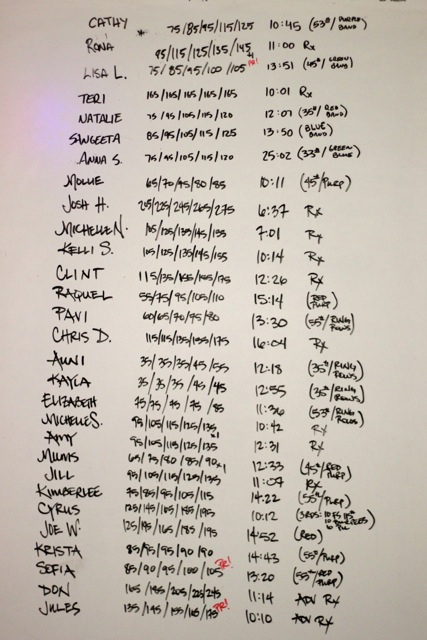 CATHY * 75/85/95/115/125 10:45 (53#/PURPLE BAND)
RONA 95/115/125/135/145 11:00 Rx
LISA L. 75/85/95/100/105 PR! 13:51 (45#/GREEN BAND)
TERI 165/165/165/165/165 10:01 Rx
NATALIE 75/95/105/115/120 12:07 (35#/RED BAND)
SANGEETA 85/95/105/115/125 13:50 (BLUE BAND)
ANNA S. 75/95/105/115/120 25:02 (33#/GREEN BLUE)
MOLLIE 65/70/75/80/85 10:11 (45#/PURP)
JOSH H. 205/225/245/265/275 6:37 Rx
MICHELLE N. 105/125/135/145/155 7:01 Rx
KELLI S. 105/125/135/145/155 10:14 Rx
CLINT 115/135/155/165/175 12:26 Rx
RAQUEL 55/75/95/105/110 15:14 (RED PURP)
PAVI 60/65/70/75/80 13:30 (55#/RING ROWS)
CHRIS D. 115/115/135/155/175 16:04 Rx
35/35/35/45/55 12:18 (35#/RING ROWS)
KAYLA 35/35/35/45/45 12:55 (35#/RING ROWS)
ELIZABETH 75/75/75/75/85 11:36 (53#/RING ROWS)
MICHELLE S. 95/105/115/125/135 10:42 Rx
AMY 95/105/115/125/135 x1 12:31 Rx
MUMS 65/75/80/85/90 x1 12:33 (45#/RED PURP)
JILL 95/105/115/125/135 11:07 Rx
KIMBERLEE 75/85/95/105/115 14:22 (55#/PURP)
CYRUS 125/145/165/185/195 10:12
JOE W 125/145/165/185/195 14:52 (RED)
KRISTA 85/95/95/90/90 14:43 (55#/PURP)
SOFIA 85/90/95/100/105 PR! 13:20 (55#/RED PURP)
DON 165/185/205/225/245 11:14 ADV Rx
JULES 135/145/155/165/175 PR! 10:10 ADV Rx